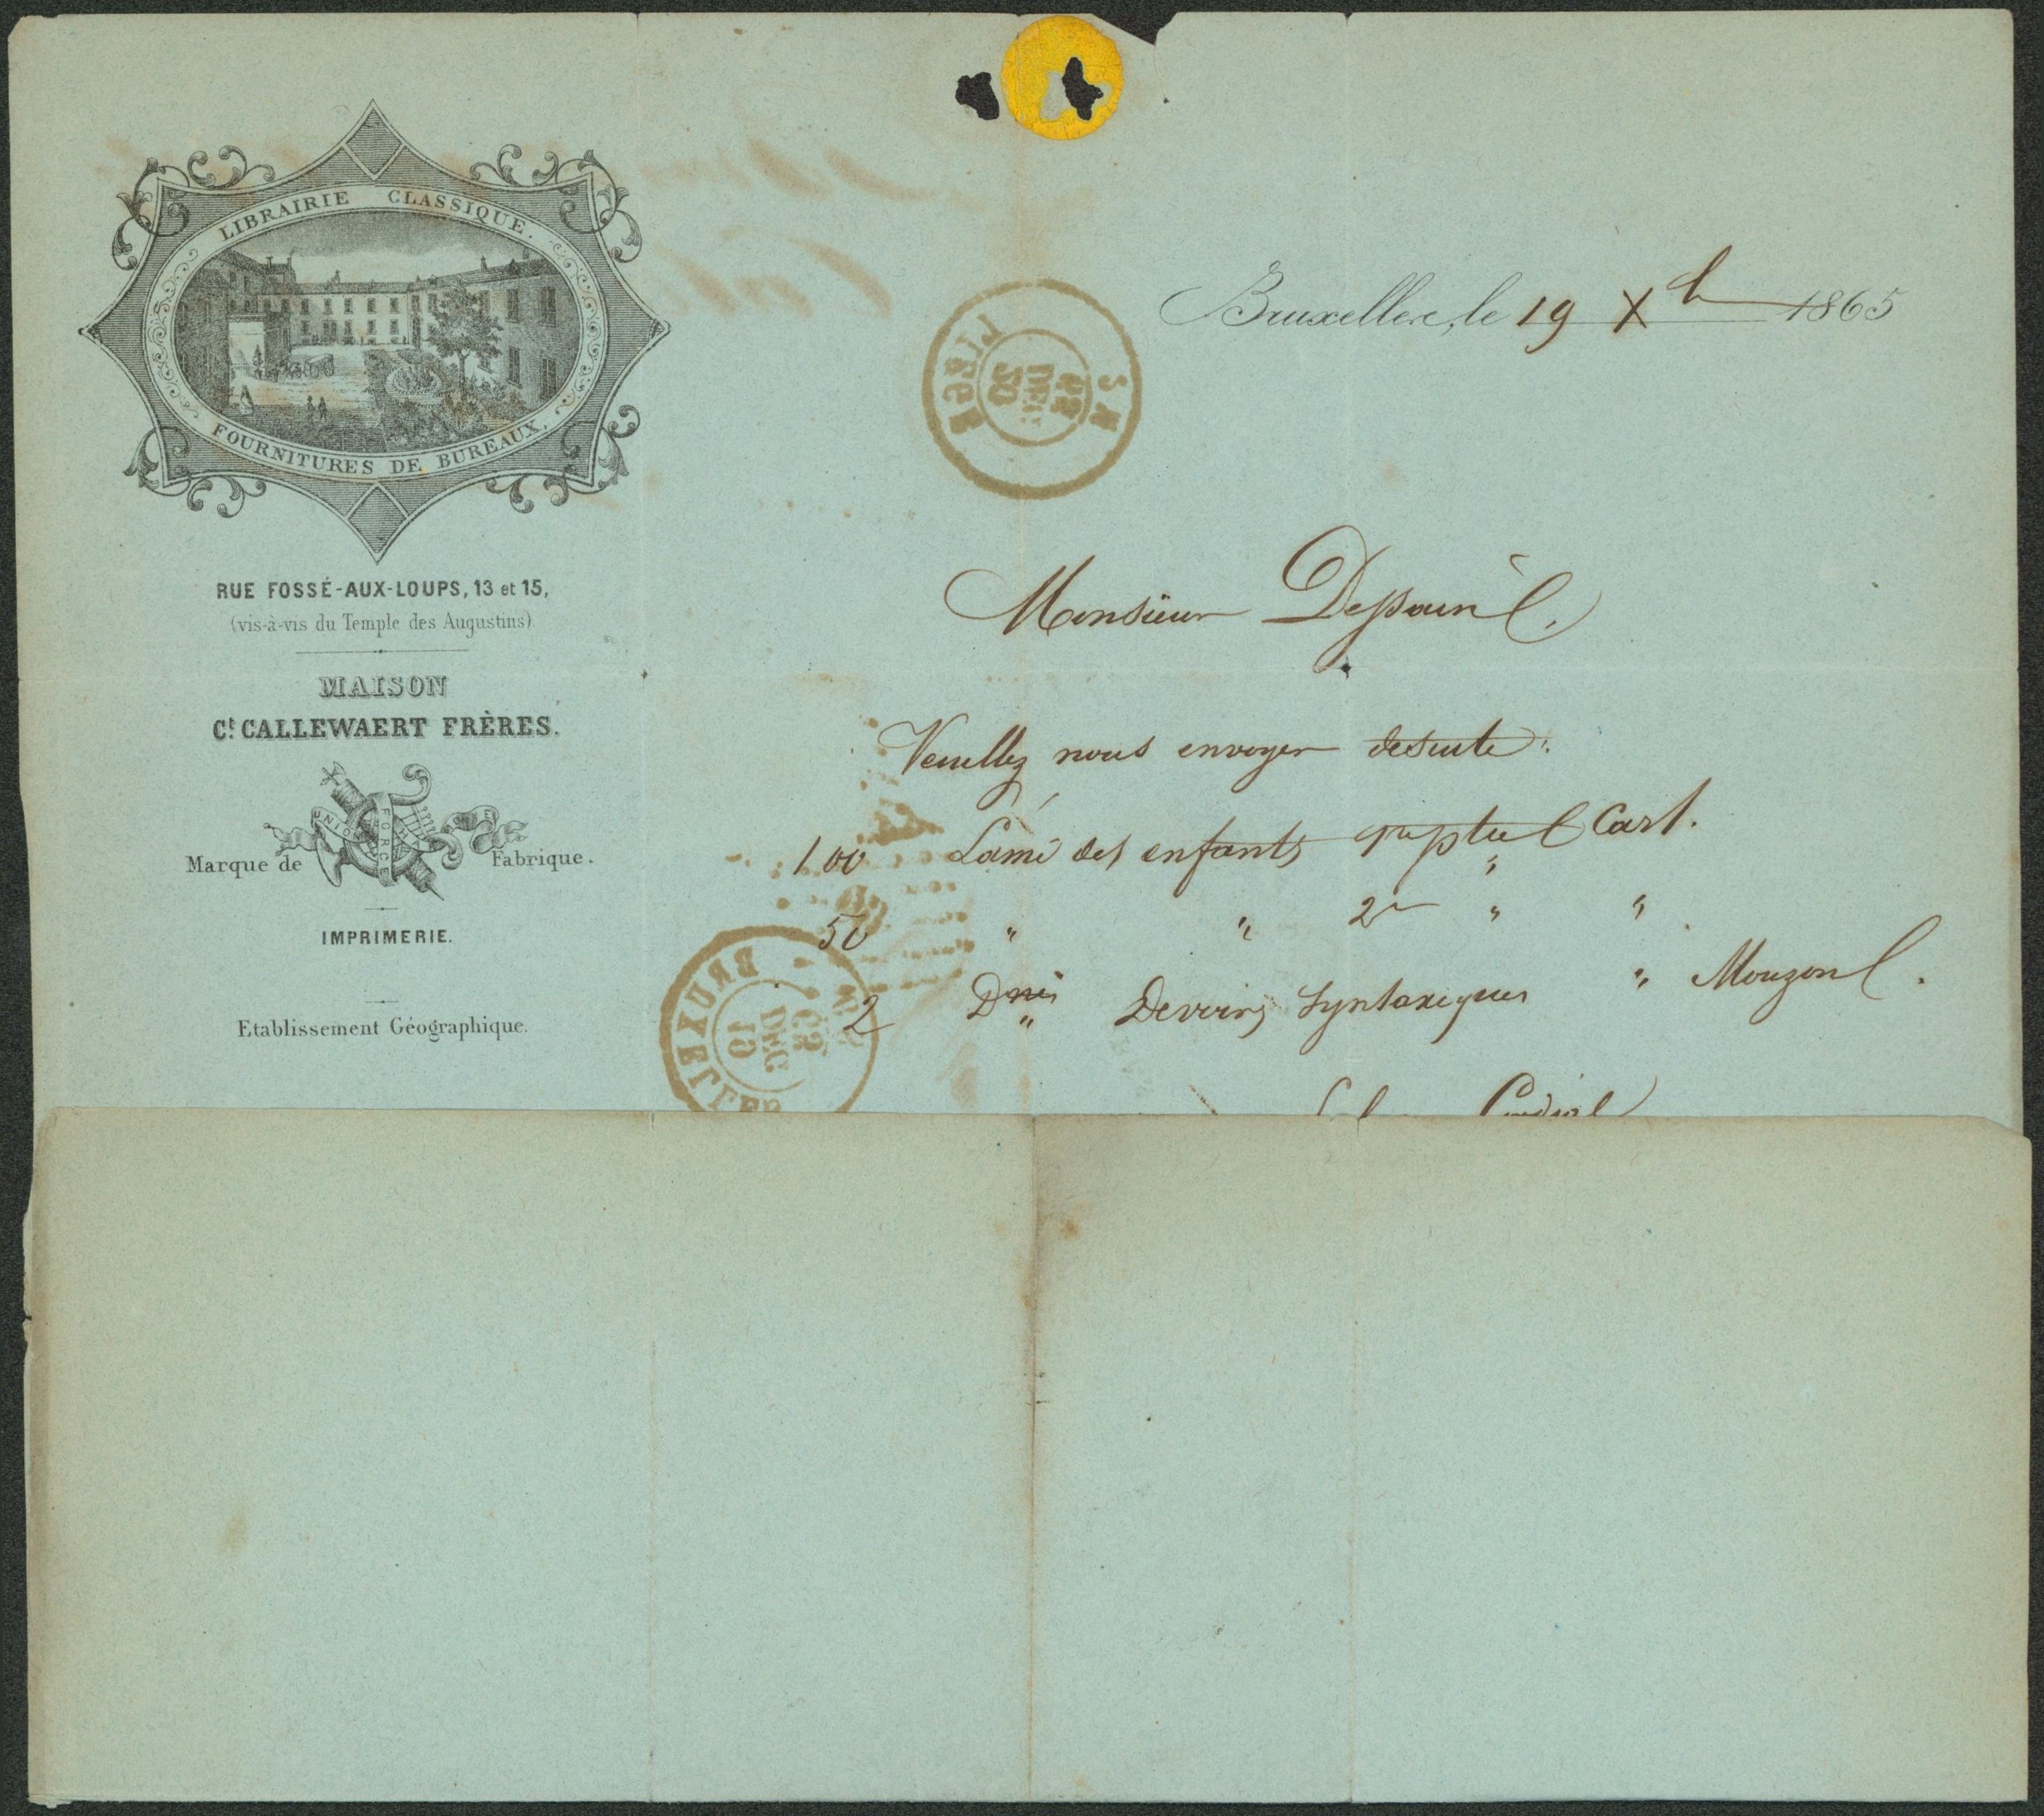 LIBRAIRIE CLASSIQUE.
FOURNITURES DE BUREAUX.
RUE FOSSÉ-AUX-LOUPS, 13 et 15,
(vis-à-vis du Temple des Augustins)
MAISON
Ct CALLEWAERT FRÈRES.
UNION FORCE
Marque de Fabrique.
IMPRIMERIE.
Etablissement Géographique.
Bruxelles, le 19 Xb 1865
LIEGE
20 DEC 65
BRUXELLES
19 DEC 65
Monsieur Dessain
Veuillez nous envoyer desuite:
100 L'ami des enfants 1re ptie Cart.
50 " " 2e " "
2 Dnes Devoirs Syntaxiques " Mouzon.